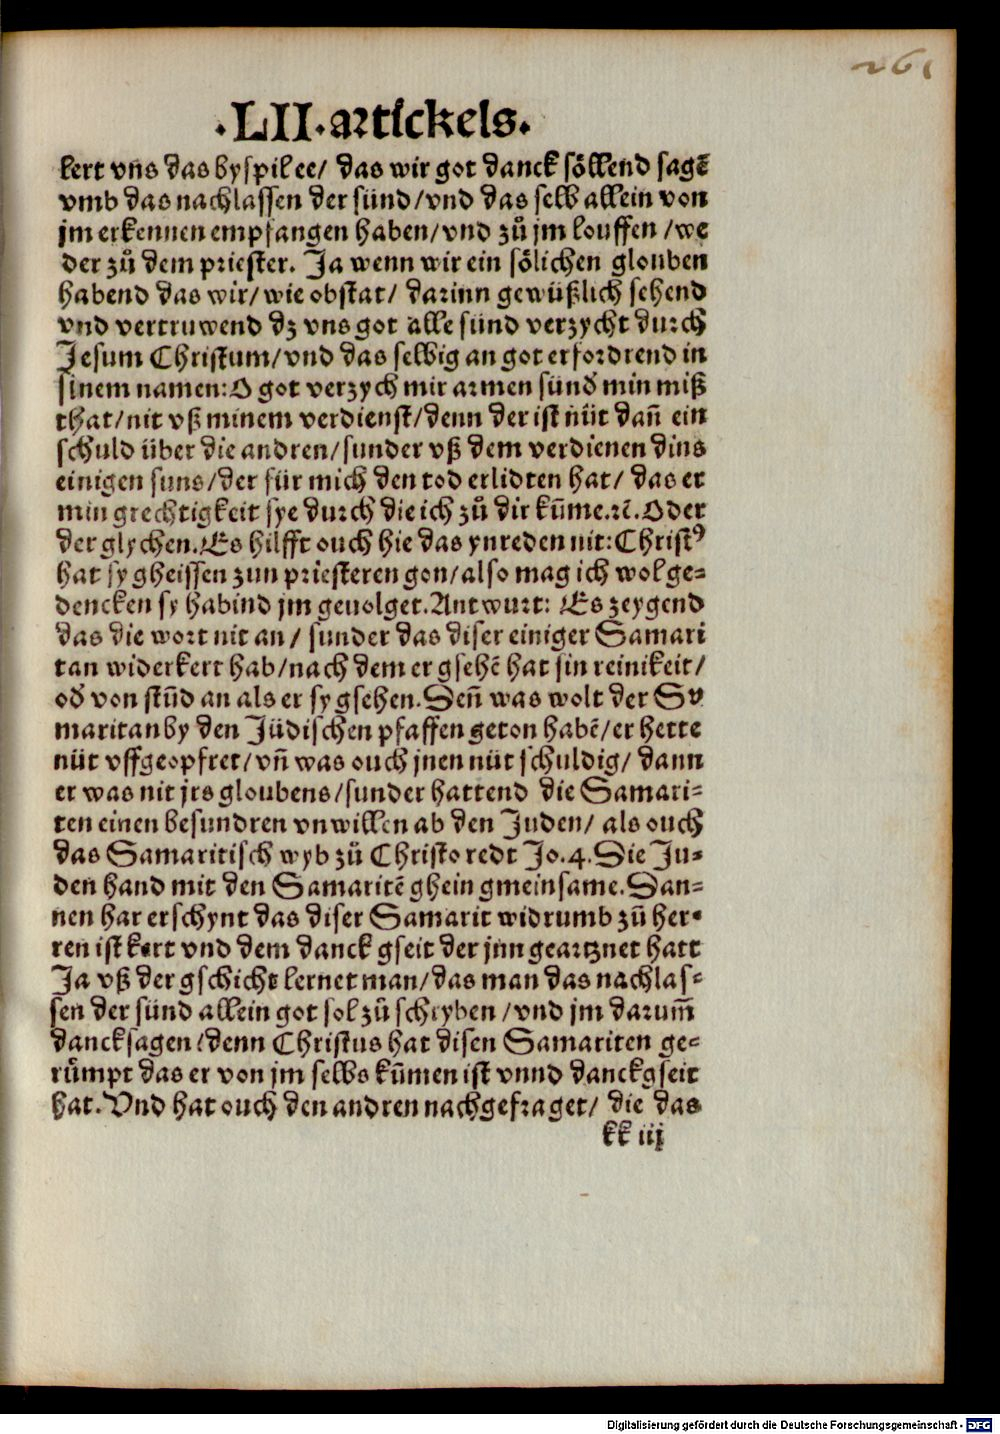 261
·LII·artickels·
lert vns das byspil ee/ das wir got danck söllend sagē
vmb das nachlassen der sünd/vnd das selb allein von
jm erkennen empfangen haben/vnd zů jm louffen /we
der zů dem priester. Ja wenn wir ein sölichen glouben
habend das wir/ wie obstat/ darinn gewüßlich sehend
vnd vertruwend dz vns got alle sünd verzycht durch
Jesum Christum/vnd das selbig an got erfordrend in
sinem namen: O got verzych mir armen sünd̄ min miß
that/nit vß minem verdienst/denn der ist nüt dañ ein
schuld über die andren/sunder vß dem verdienen dins
einigen suns/der für mich den tod erlidten hat/ das er
min grechtigkeit sye durch die ich zů dir kūme.ꝛc̄. Oder
der glychen. Es hilfft ouch hie das ynreden nit: Christꝰ
hat sy gheissen zun priesteren gon/also mag ich wol ge-
dencken sy habind jm geuolget. Antwurt: Es zeygend
das die wort nit an/ sunder das diser einiger Samari
tan widerkert hab/nach dem er gsehē hat sin reinikeit/
od̄ von stūd an als er sy gsehen. Deñ was wolt der Sa
maritan by den Jüdischen pfaffen geton habē/er hette
nüt vffgeopfret/vñ was ouch jnen nüt schuldig/ dann
er was nit jrs gloubens/sunder hattend die Samari-
ten einen besundren vnwillen ab den Juden/ als ouch
das Samaritisch wyb zů Christo redt Jo.4. Die Ju-
den hand mit den Samaritē ghein gmeinsame. Dan-
nen har erschynt das diser Samarit widrumb zů her-
ren ist kert vnd dem danck gseit der jnn geartznet hatt
Ja vß der gschicht lernet man/das man das nachlas-
sen der sünd allein got sol zů schryben /vnd jm darum̄
dancksagen/denn Christus hat disen Samariten ge-
růmpt das er von jm selbs kūmen ist vnnd danckgseit
hat. Vnd hat ouch den andren nachgefraget/ die das
kk iij
Digitalisierung gefördert durch die Deutsche Forschungsgemeinschaft - DFG